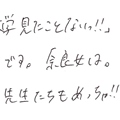 学見たことないっ!!」
です。奈良女は。
先生たちもめっちゃ!!